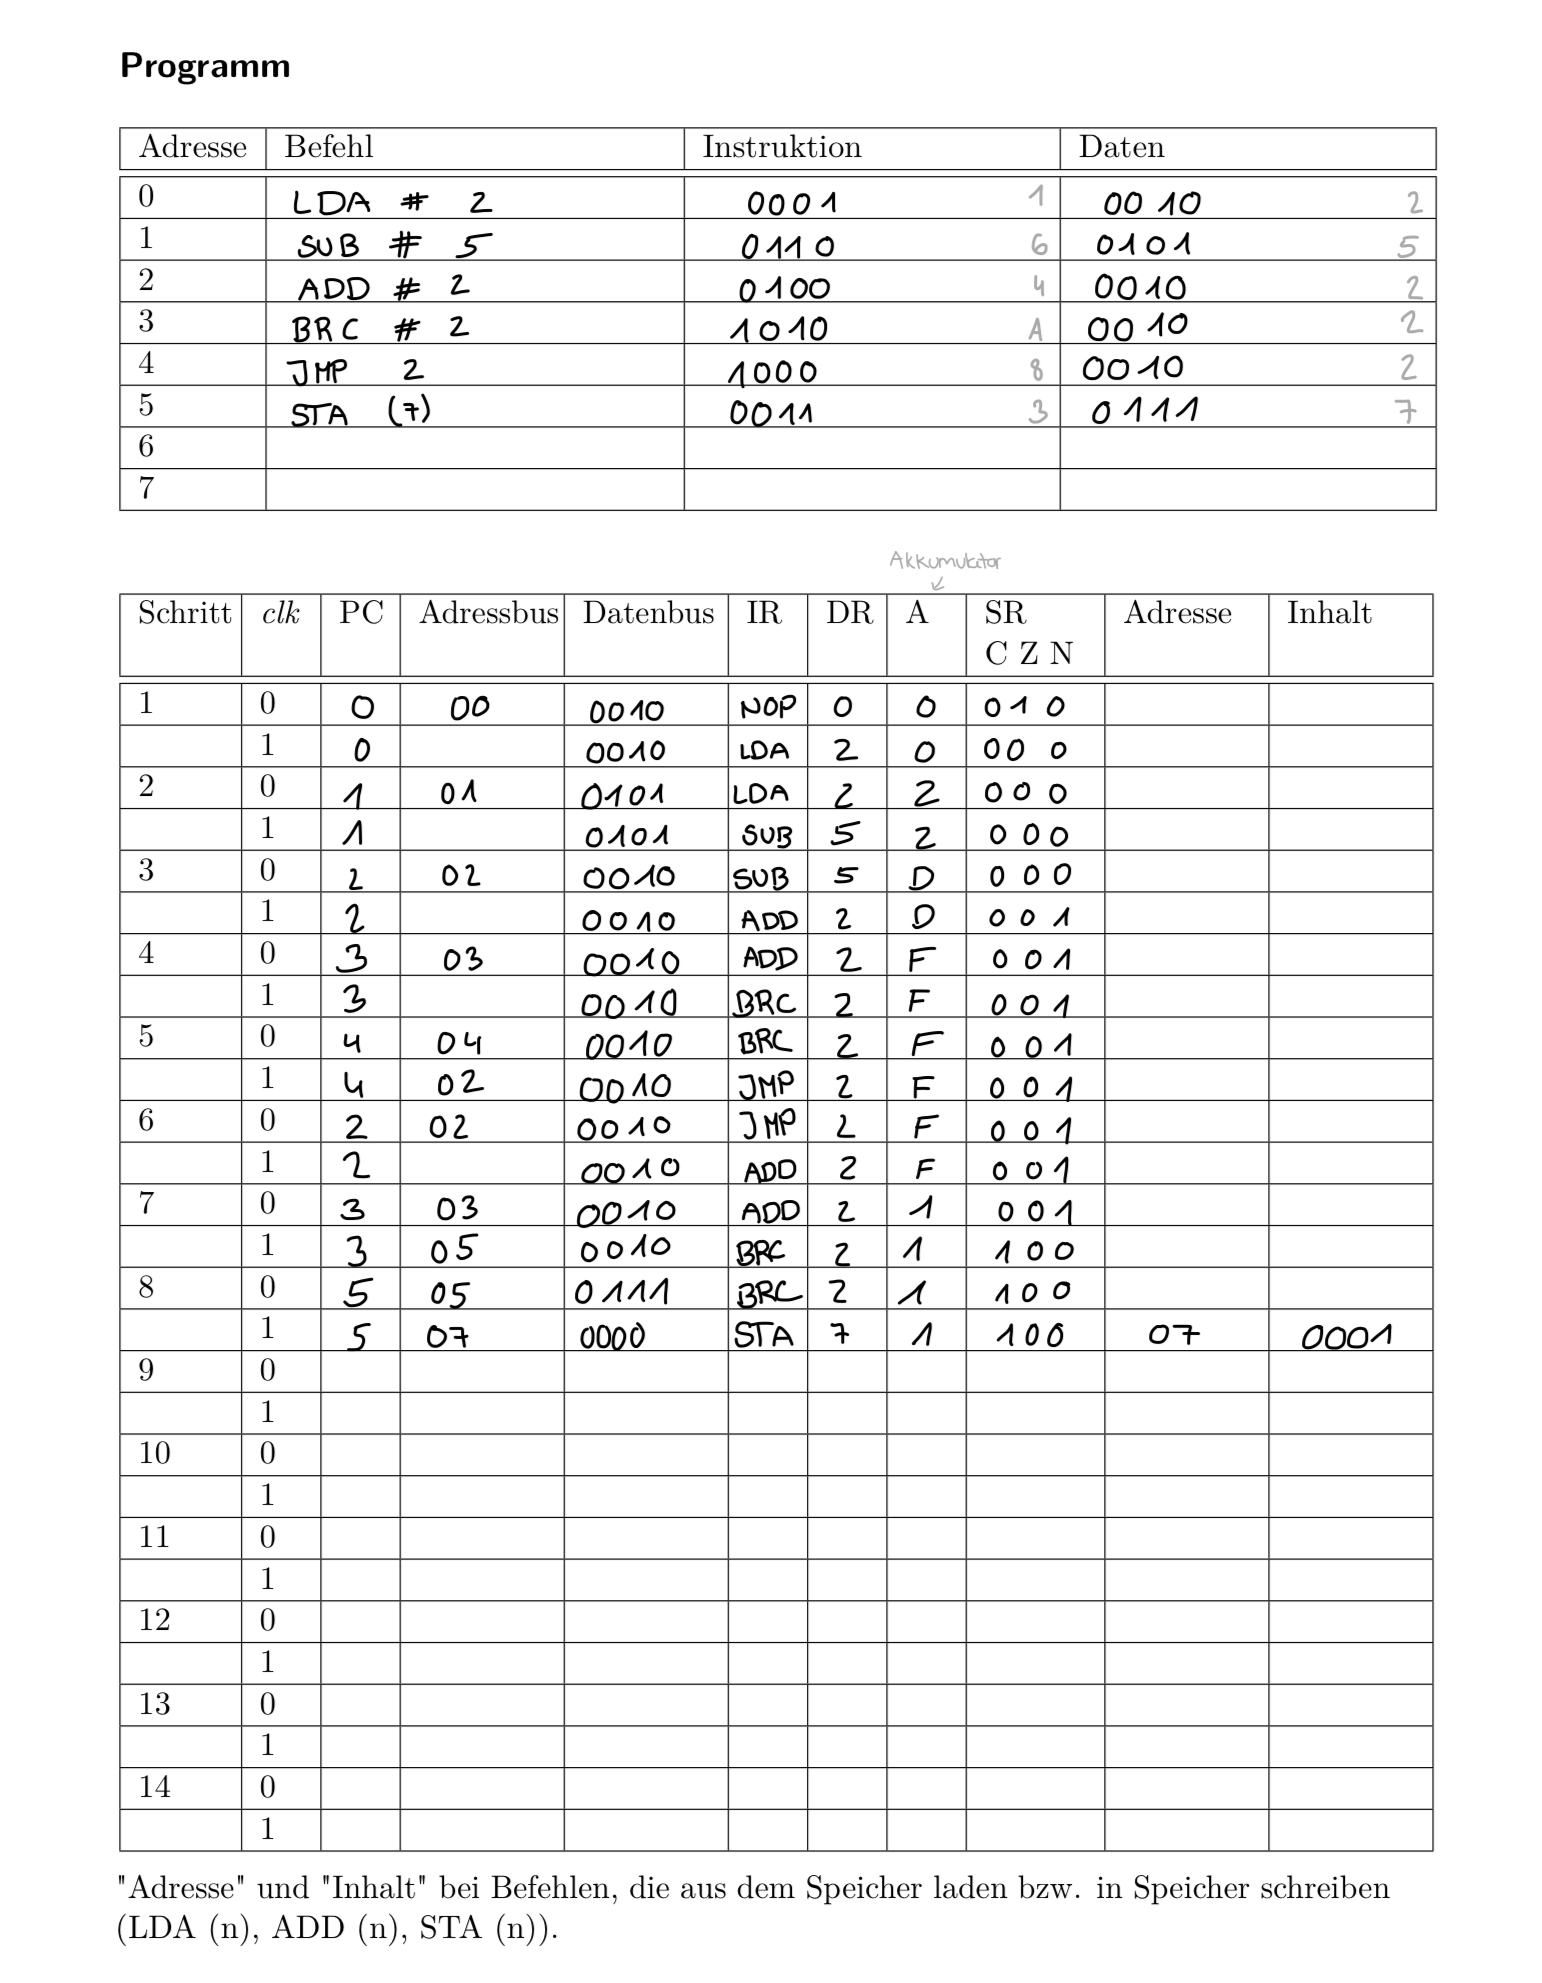 Programm
Adresse Befehl Instruktion Daten
0 LDA # 2 0001 1 0010 2
1 SUB # 5 0110 6 0101 5
2 ADD # 2 0100 4 0010 2
3 BRC # 2 1010 A 0010 2
4 JMP 2 1000 8 0010 2
5 STA (7) 0011 3 0111 7
6
7
Akkumulator
Schritt clk PC Adressbus Datenbus IR DR A SR Adresse Inhalt
C Z N
1 0 0 00 0010 NOP 0 0 0 1 0
1 0 0010 LDA 2 0 0 0 0
2 0 1 01 0101 LDA 2 2 0 0 0
1 1 0101 SUB 5 2 0 0 0
3 0 2 02 0010 SUB 5 D 0 0 0
1 2 0010 ADD 2 D 0 0 1
4 0 3 03 0010 ADD 2 F 0 0 1
1 3 0010 BRC 2 F 0 0 1
5 0 4 04 0010 BRC 2 F 0 0 1
1 4 02 0010 JMP 2 F 0 0 1
6 0 2 02 0010 JMP 2 F 0 0 1
1 2 0010 ADD 2 F 0 0 1
7 0 3 03 0010 ADD 2 1 0 0 1
1 3 05 0010 BRC 2 1 1 0 0
8 0 5 05 0111 BRC 2 1 1 0 0
1 5 07 0000 STA 7 1 1 0 0 07 0001
9 0
1
10 0
1
11 0
1
12 0
1
13 0
1
14 0
1
"Adresse" und "Inhalt" bei Befehlen, die aus dem Speicher laden bzw. in Speicher schreiben
(LDA (n), ADD (n), STA (n)).